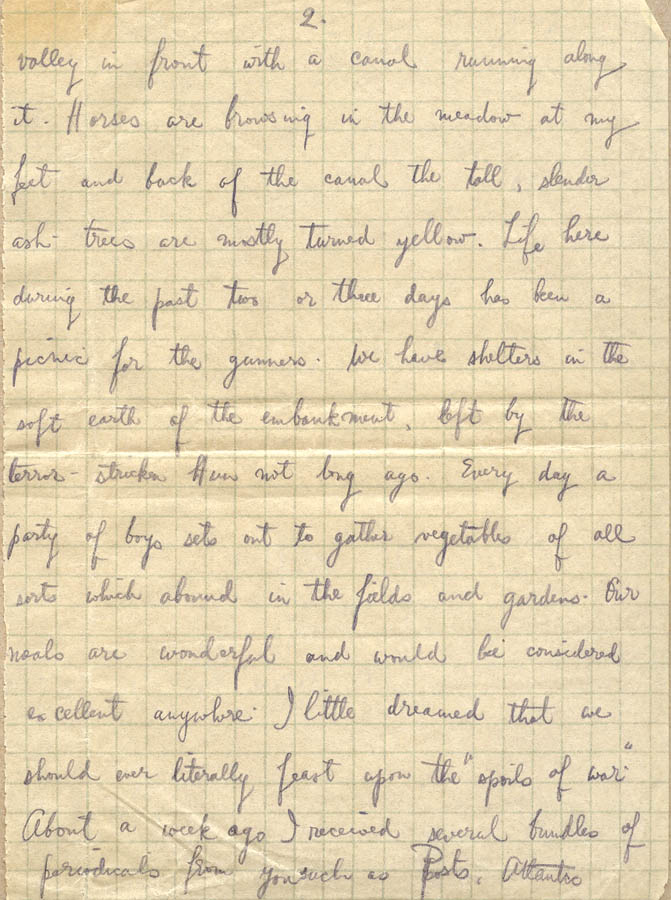 2.
valley in front with a canal running along
it. Horses are browsing in the meadow at my
feet and back of the canal the tall, slender
ash-trees are mostly turned yellow. Life here
during the past two or three days has been a
picnic for the gunners. We have shelters in the
soft earth of the embankment, left by the
terror-stricken Hun not long ago. Every day a
party of boys sets out to gather vegetables of all
sorts which abound in the fields and gardens. Our
meals are wonderful and would be considered
excellent anywhere. I little dreamed that we
should ever literally feast upon the "spoils of war."
About a week ago I received several bundles of
periodicals from you such as Posts, Atlantic